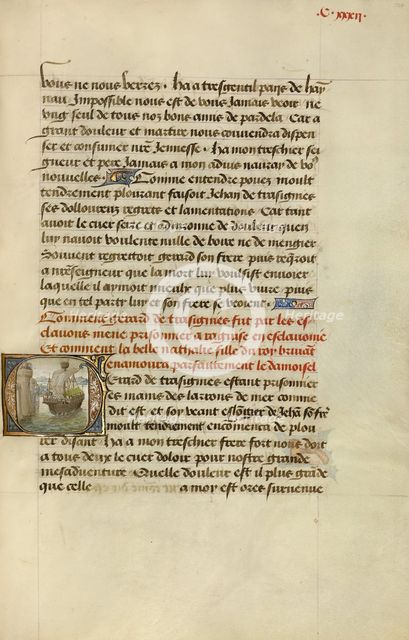 C · xxxii
vous ne nous verrez · Ha a tresgentil pays de hay
nau Impossible nous est de vous Jamais veoir ne
ung seul de tous noz bons amis de pardela Car a
grant douleur et martire nous convendra dispen
ser et consumer nre Jennesse · Ha mon treschier sei
gneur et pere Jamais a mon advis nauray de vos
nouvelles · Comme entendre povez moult
tendrement plourant faisoit Jehan de trasignies
ses doloreux regretz et lamentations Car tant
avoit le cuer serre et de douleur quen
luy navoit voulente nulle de boire ne de mengier
Souvent regrettoit gerard son frere puis reqroit
a nreseigneur que la mort luy voulsist envoier
laquelle il aymoit mieulx que plus vivre puis
que en tel party luy et son frere se veoient ·
Comment gerard de trasignies fut par les es
clavons mene prisonnier a raguise en esclavonie
Et comment la belle nathalie fille du roy bruyant
senamoura parfaittement du damoisel
Gerard de trasignies estant prisonnier
es mains des larrons de mer comme
dit est et soy veant eslongier de Jehan so frere
moult tendrement encomenca de plou
rer disant Ha a mon treschier frere fort nous doit
a tous deux le cuer doloir pour nostre grande
mesadventure Quelle douleur est il plus grade
que celle a moy est ores survenue
Heritage